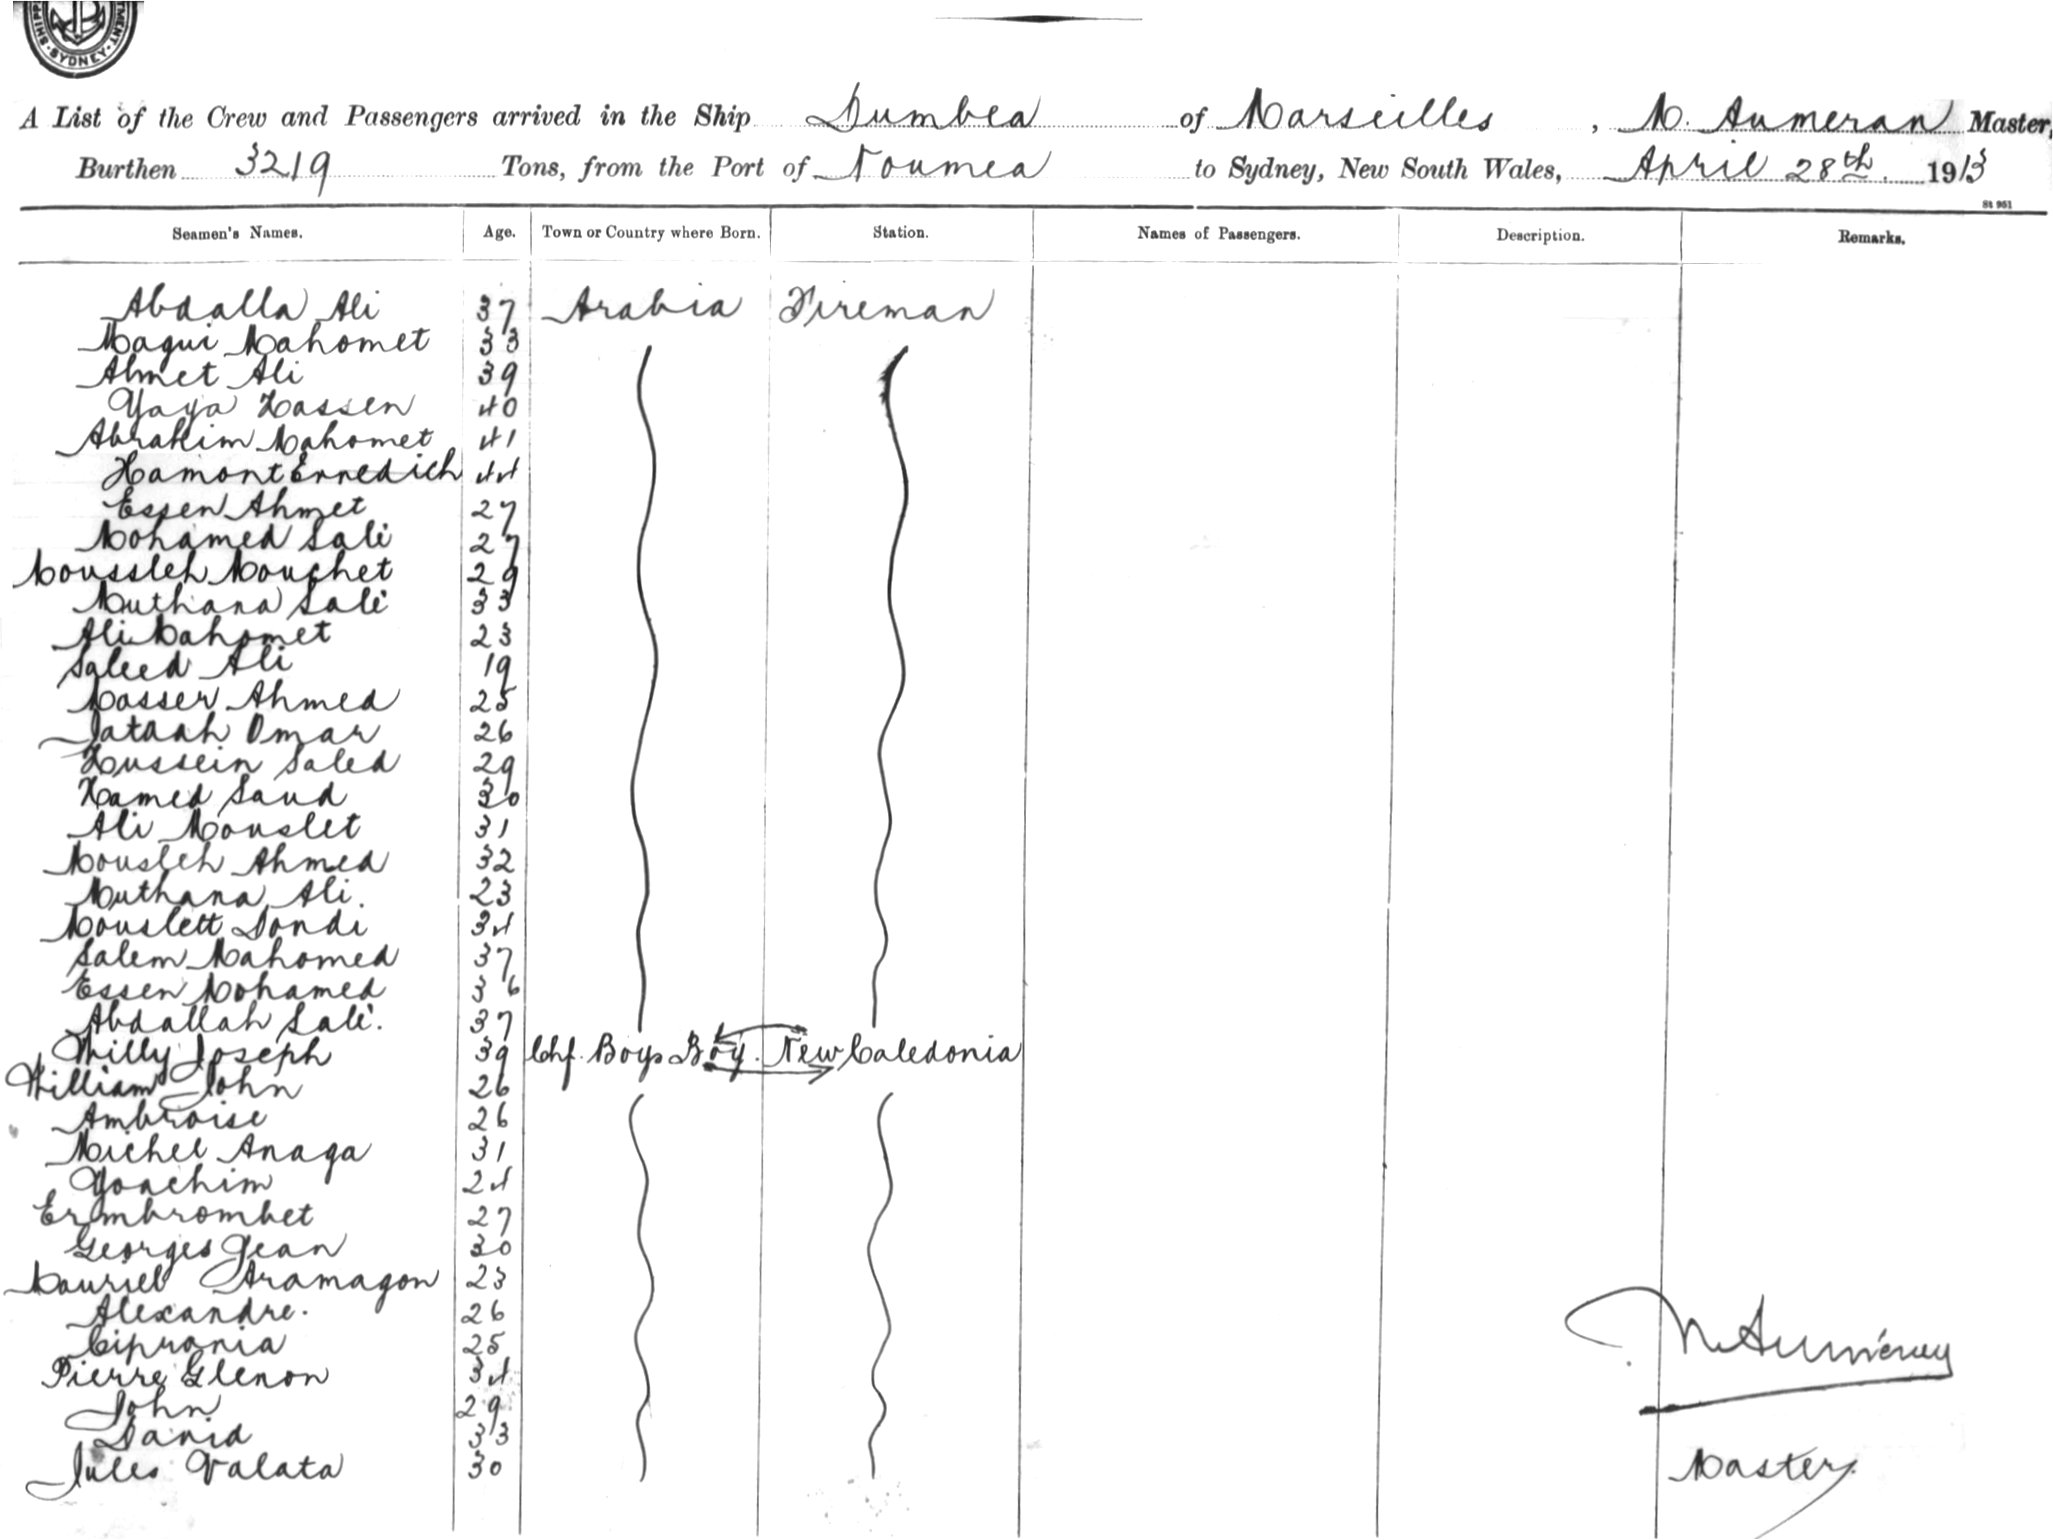 SHIPP
SYDNEY
TMENT
A List of the Crew and Passengers arrived in the Ship Dumbea of Marseilles, M. Aumeran Master,
Burthen 3219 Tons, from the Port of Noumea to Sydney, New South Wales, April 28th. 1913
St 951
Seamen's Names. Age. Town or Country where Born. Station. Names of Passengers. Description. Remarks.
Abdalla Ali 37 Arabia Fireman
Magui Mahomet 33
Ahmet Ali 39
Yaya Hassen 40
Abrahim Mahomet 41
Hamont Erredich 44
Essen Ahmet 27
Mohamed Salé 27
Moussleh Mouchet 29
Muthana Salé 33
Ali Mahomet 23
Saleed Ali 19
Nasser Ahmed 25
Jataah Omar 26
Hussein Saled 29
Hamed Saud 30
Ali Mouslet 31
Mousleh Ahmed 32
Muthana Ali. 23
Mouslett Dondi 34
Salem Mahomed 37
Essen Mohamed 36
Abdallah Salé. 37
Willy Joseph 39 Chf. Boys Boy. New Caledonia
William John 26
Ambroise 26
Michel Anaga 31
Yoachim 24
Ermbrombet 27
Georges Jean 30
Maursel Aramagon 23
Alexandre. 26
Ciprania 25
Pierre Glenon 34
John 29
David 33
Jules Valata 30
M Aumeran
Master